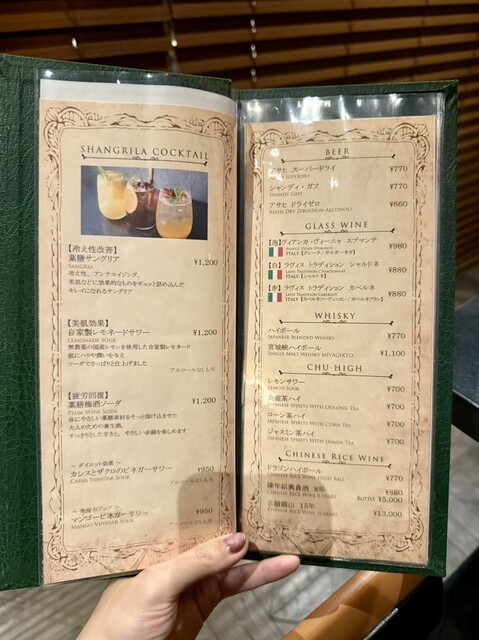 SHANGRILA COCKTAIL
【冷え性改善】
薬膳サングリア ¥1,200
SANGRIA
冷え性、アンチエイジング、
美肌などに効果的なものをギュッと詰め込んだ
キレイになれるサングリア
【美肌効果】
自家製レモネードサワー ¥1,200
LEMONADE SOUR
無農薬の国産レモンを使用した自家製レモネード
肌にハリや潤いを与え
ソーダでさっぱりと仕上げました
アルコールなしも可
【疲労回復】
薬膳梅酒ソーダ ¥1,200
PLUM WINE SODA
体にやさしい薬膳素材をそっと溶け込ませた
大人のための養生酒。
すっきりとした甘さと、やさしい余韻を楽しめます
～ダイエット効果～
カシスとザクロのビネガーサワー ¥950
CASSIS VINEGAR SOUR
アルコールなしも可
マンゴービネガーサワー ¥950
MANGO VINEGAR SOUR
アルコールなしも可
BEER
アサヒ スーパードライ ¥770
SUPERDRY
シャンディ・ガフ ¥770
SHANDY GAFF
アサヒ ドライゼロ ¥660
ASAHI DRY ZERO(NON-ALCOHOL)
GLASS WINE
【泡】ヴィアンカ・ヴィーニャ スプマンテ ¥980
ITALY
【白】ラヴィス トラディション シャルドネ ¥880
LAVIS TRADITION CHARDONNAY
ITALY【シャルドネ】
【赤】ラヴィス トラディション カベルネ ¥880
LAVIS TRADITION CABERNET
ITALY【カベルネソーヴィニヨン/カベルネフラン】
WHISKY
ハイボール ¥770
JAPANESE BLENDED WHISKY
宮城峡ハイボール ¥1,100
SINGLE MALT WHISKY MIYAGIKYO
CHU-HIGH
レモンサワー ¥700
LEMON SOUR
烏龍茶ハイ ¥700
JAPANESE SPIRITS WITH OOLONG TEA
コーン茶ハイ ¥700
JAPANESE SPIRITS WITH CORN TEA
ジャスミン茶ハイ ¥700
JAPANESE SPIRITS WITH JASMIN TEA
CHINESE RICE WINE
ドラゴンハイボール ¥770
CHINESE RICE WINE HIGH BALL
陳年紹興貴酒 8年 ¥880
CHINESE RICE WINE 8 YEARS BOTTLE ¥5,000
古越龍山 15年 ¥13,000
CHINESE RICE WINE 15 YEARS